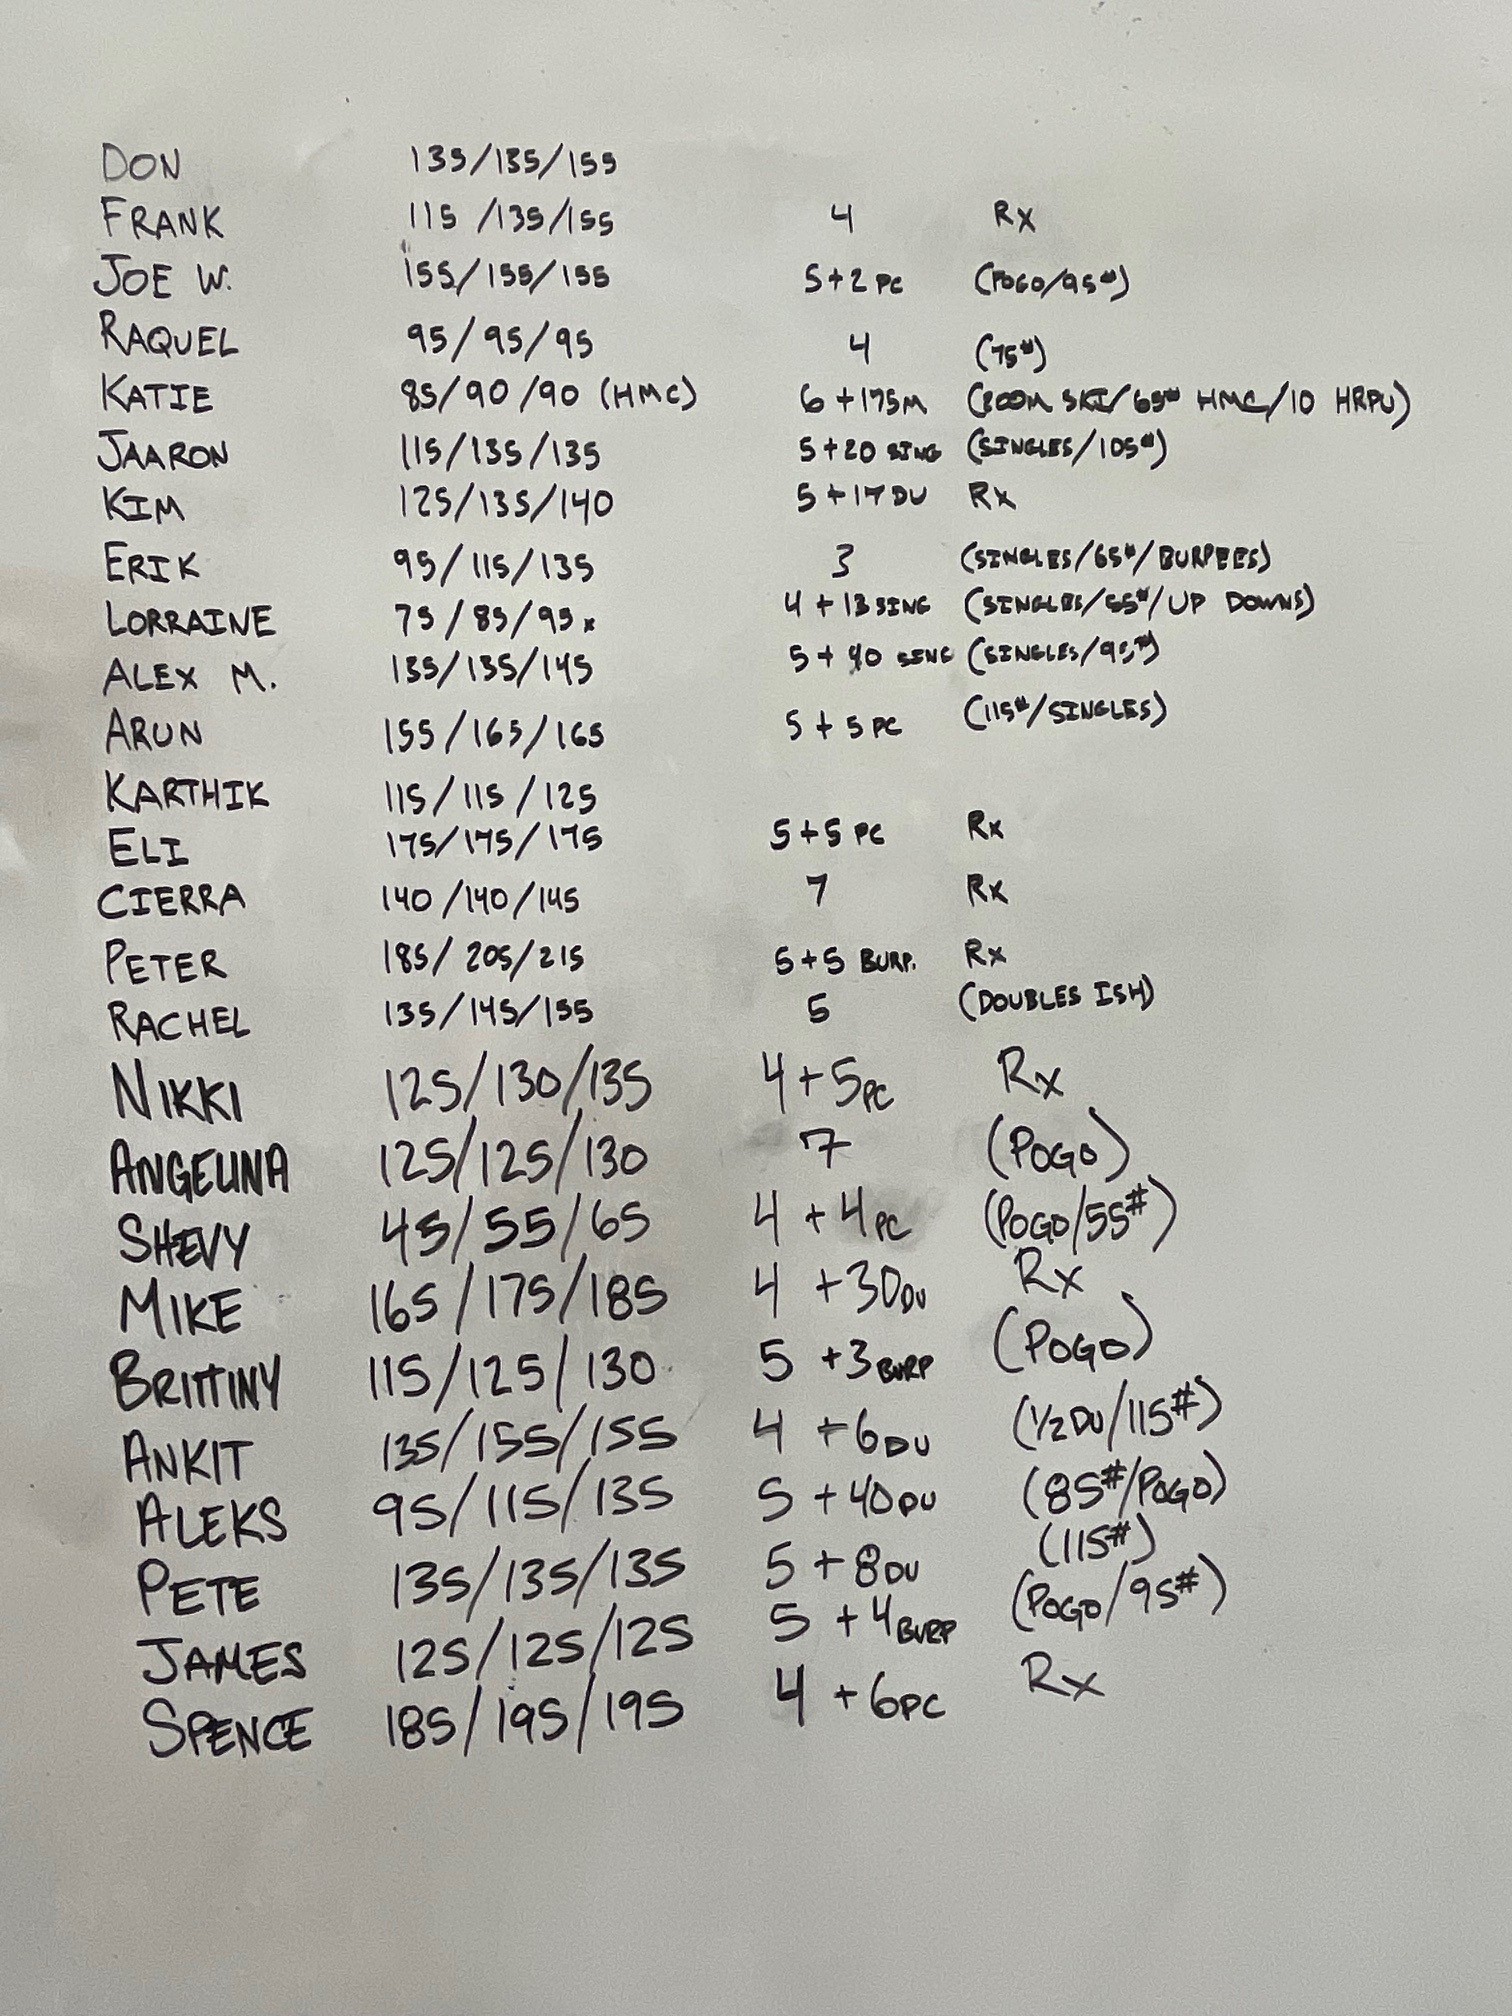 DON 135/135/155
FRANK 115/135/155 4 Rx
JOE W. 155/155/155 5+2 PC (POGO/95#)
RAQUEL 95/95/95 4 (75#)
KATIE 85/90/90 (HMC) 6+175M (200M SKI/65# HMC/10 HRPU)
JAARON 115/135/135 5+20 SING (SINGLES/105#)
KIM 125/135/140 5+17 DU Rx
ERIK 95/115/135 3 (SINGLES/65#/BURPEES)
LORRAINE 75/85/95x 4+13 SING (SINGLES/55#/UP DOWNS)
ALEX M. 135/135/145 5+40 SING (SINGLES/95#)
ARUN 155/165/165 5+5 PC (115#/SINGLES)
KARTHIK 115/115/125
ELI 175/175/175 5+5 PC Rx
CIERRA 140/140/145 7 Rx
PETER 185/205/215 5+5 BURP. Rx
RACHEL 135/145/155 5 (DOUBLES ISH)
NIKKI 125/130/135 4+5PC Rx
ANGELINA 125/125/130 7 (POGO)
SHEVY 45/55/65 4+4PC (POGO/55#)
MIKE 165/175/185 4+30DU Rx
BRITTINY 115/125/130 5+3BURP (POGO)
ANKIT 135/155/155 4+6DU (1/2 DU/115#)
ALEKS 95/115/135 5+40DU (85#/POGO)
PETE 135/135/135 5+8DU (115#)
JAMES 125/125/125 5+4BURP (POGO/95#)
SPENCE 185/195/195 4+6PC Rx